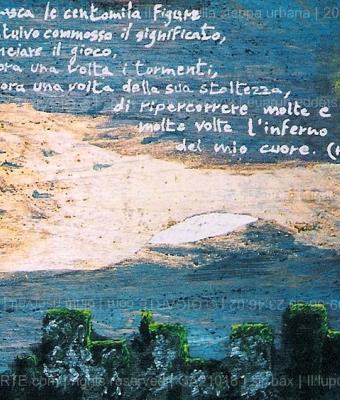 asca le centomila Figure
tuivo commosso il significato,
nciare il gioco,
ora una volta i tormenti,
ora una volta della sua stoltezza,
di ripercorrere molte e
molte volte l'inferno
del mio cuore. (